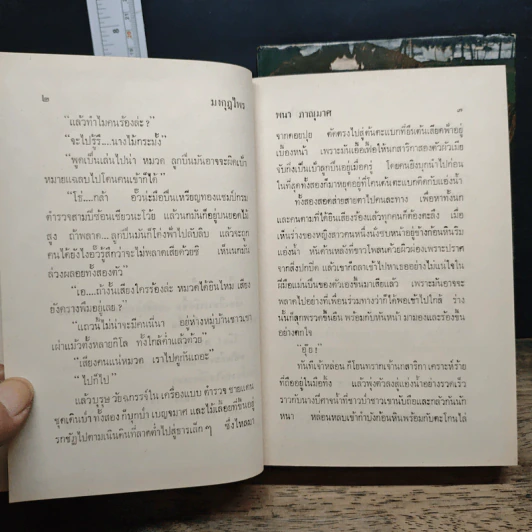 ๒
มหกุฎไพร
"แล้วทำไมคนร้องล่ะ?"
"จะไปรู้รึ....นางไม้กระมั้ง"
"พูดเป็นเล่นไปน่า หมวด ลูกปืนมันอาจจะผิดเป้า
หมายแฉลบไปโดนคนเข้าก็ได้"
"โธ่....กล้า อั๊วน่ะมือปืนเหรียญทองแชมป์กรม
ตำรวจสามปีซ้อนเชียวนะโว้ย แล้วนกมันก็อยู่บนยอดไม้
สูง ถ้าพลาด...ลูกปืนมันก็โด่งฟ้าไปลับลิบ แล้วจะถูก
คนได้ยังไงอั๊วรู้สึกว่าจะไม่พลาดเสียด้วยซิ เห็นนกมัน
ล่วงผลอยทั้งสองตัว"
"เอ....ถ้างั้นเสียงใครร้องล่ะ หมวดได้ยินไหม เสียง
ยังครางพึมอยู่เลย?"
"แถวนี้ไม่น่าจะมีคนนี่นา อยู่ห่างหมู่บ้านชาวเขา
เผ่าแม้วตั้งหลายกิโล ทั้งใกล้ค่ำแล้วด้วย"
"เสียงคนแน่หมวด เราไปดูกันเถอะ"
"ไปก็ไป"
แล้วบุรุษ วัยฉกรรจ์ใน เครื่องแบบ ตำรวจ ชายแดน
ชุดเดินป่า ทั้งสอง ก็บุกป่า เบญจมาศ และไม้เลื้อยที่ขึ้นอยู่
รกชัฏไปตามเนินดินที่ลาดต่ำไปสู่ธารเล็กๆ ซึ่งไหลมา
พนา ภาณุมาศ
๓
จากดอยปุย ตัดตรงไปสู่ต้นตะแบกที่ยืนต้นเสียดฟ้าอยู่
เบื้องหน้า เพราะมัน
ในที่สุดทั้งสองก็มาหยุดอยู่ที่โคนต้นตะแบกติดกับแอ่งน้ำ
ทั้งสองสอดส่ายสายตาไปคนละทาง เพื่อหาทั้งนก
และคนตามที่ได้ยินเสียงร้องแล้วทุกคนก็ต้องตะลึง เมื่อ
เห็นร่างของหญิงสาวคนหนึ่งนั่งซบหน้าอยู่ข้างก้อนหินริม
แอ่งน้ำ หันด้านหลังที่ขาวโพลนด้วยผิวผ่องเพราะปราศ
จากสิ่งปกปิด แล้วเขาก็ถลาเข้าไปหาเธออย่างไม่แน่ใจใน
ฝีมือแม่นปืนของตัวเองขึ้นมาเสียแล้ว เพราะมันอาจจะ
พลาดไปอย่างที่เพื่อนร่วมทางว่าก็ได้พอเข้าไปใกล้ ร่าง
นั้นก็ลุกพรวดขึ้นยืน พร้อมกับหันหน้า มามองและร้องขึ้น
อย่างตกใจ
"อุ๊ย!"
ทันทีเจ้าหล่อน ก็โจนทรามเข้านกสาริกา เคราะห์ร้าย
ที่ถืออยู่ในมือทั้ง แล้วพุ่งตัวลงสู่แอ่งน้ำอย่างรวดเร็ว
ราวกับนางปีศาจน้ำที่ชาวป่าชาวเขานับถือและกลัวกันนัก
หนา หล่อนหลบเข้ากำบังก้อนหินพร้อมกับตะโกนไล่